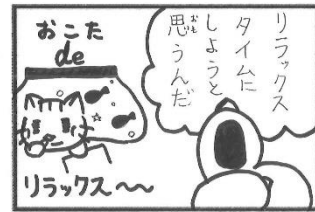 リラックス
タイムに
しようと
思うんだ
おも
おこた
de
リラックス～～